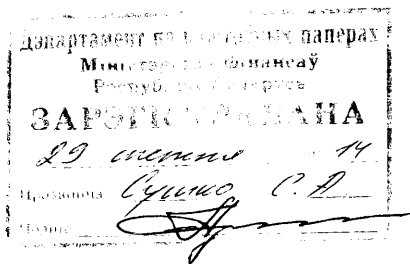 Дэпартамент па каштоўных паперах
Міністэрства фінансаў
Рэспублікі Беларусь
ЗАРЭГІСТРАВАНА
29 14
Прозвішча Сушко С. А
Подпіс